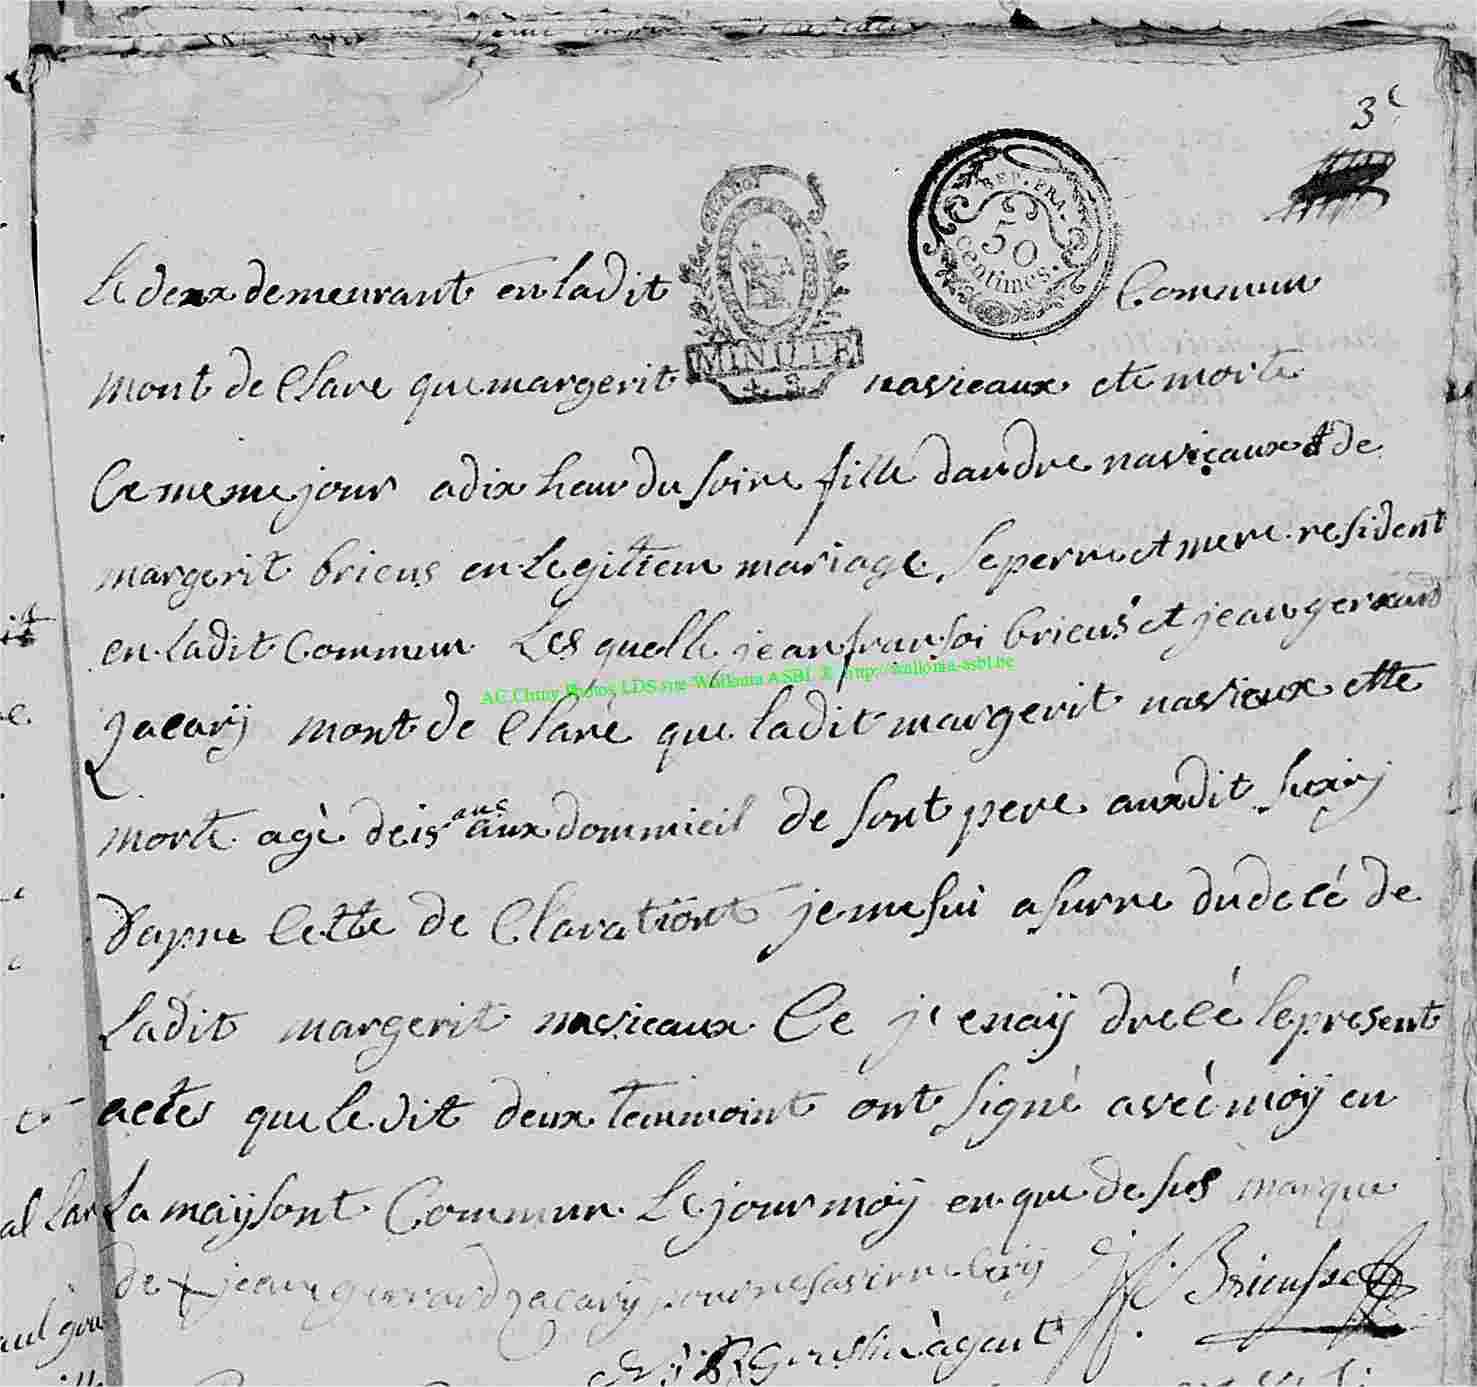 3e
REP. FRA.
50
Centimes.
MINUTE
Le deux demeurant en ladit Commun
mont de Clare que margerit navieaux ete morte
Ce meme jour a dix heur du soire fille dandre navieaux & de
margerit brieus en Legitiem mariage se perre et mere resident
en ladit Commun Les quelle jean fransoi brieus et jean gerard
Zacarÿ mont de Claré que ladit margerit navieux ette
morte agè de 15 ans aux dommieil de sont pere auxdit suxÿ
Dapre Cette de Claration je me sui asurre du decé de
Ladit margerit navieaux Ce j'enaÿ drecé le present
actes que le dit deux temmoint ont signé avec moÿ en
La maÿsont Commun Le jour moÿ en que de sus marque
de + jean gerrard zacarÿ pour ne savirre Crÿ J f. Brieusse
agant
AC Chiny Photos LDS site Wallonia ASBL © http://wallonia-asbl.be